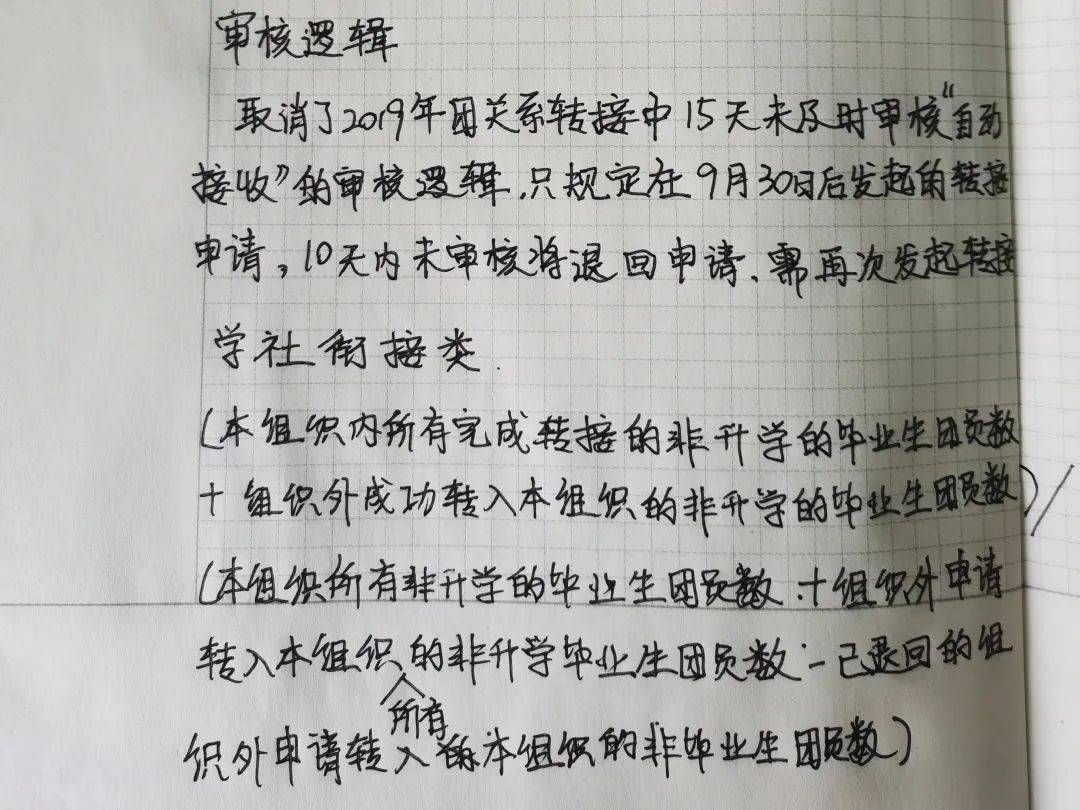 审核逻辑
取消了2019年团关系转接中15天未及时审核“自动
接收”的审核逻辑,只规定在9月30日后发起的转接
申请,10天内未审核将退回申请、需再次发起转接
学社衔接类.
(本组织内所有完成转接的非升学的毕业生团员数
+组织外成功转入本组织的非升学的毕业生团员数)/
(本组织所有非升学的毕业生团员数+组织外申请
转入本组织的非升学毕业生团员数-已退回的组
所有
织外申请转入本组织的非毕业生团员数)